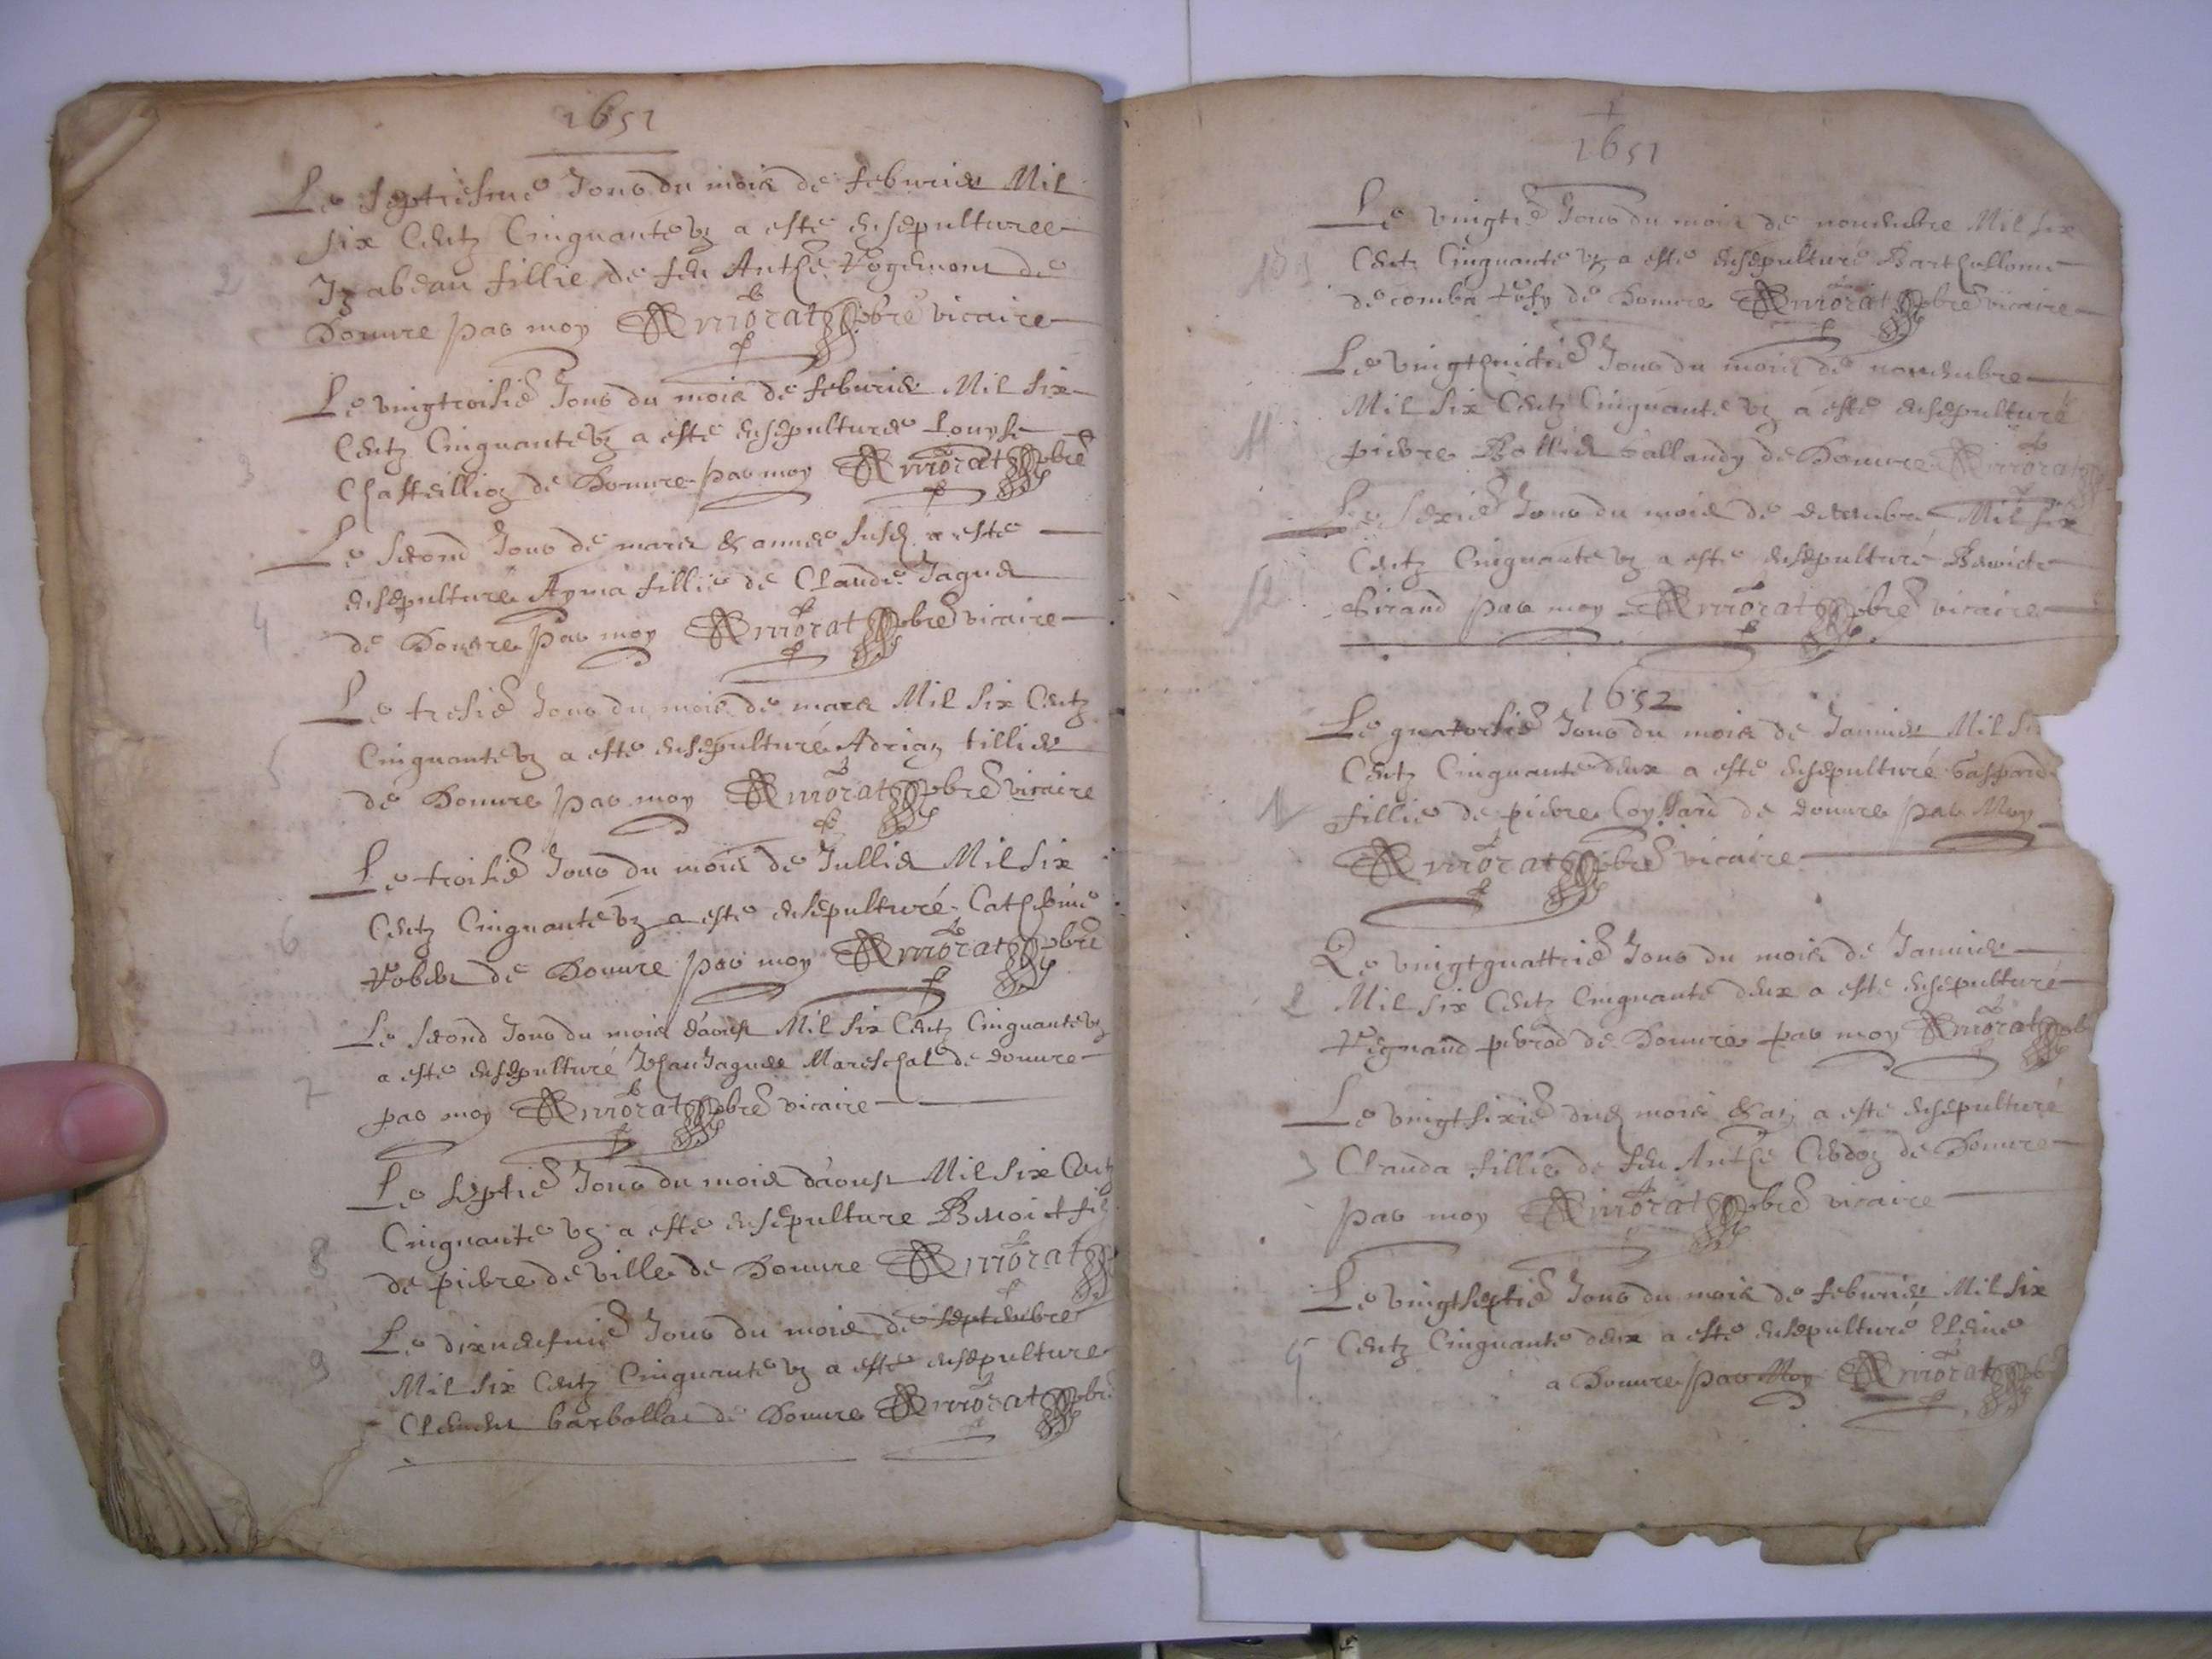 1651
Le septiesme Jour du mois de febvrier Mil
six Centz Cinquante vng a esté ensepulturee
Izabeau fillie de feu Anthe Rogemont de
Douure par moy Morat pbre vicaire
2
Le vingtroisie Jour du mois de febvrier Mil six
Centz Cinquante vng a esté ensepulturee Louyse
Chastillion de Douure par moy Morat pbre
3
Le second Jour de mars & annee susd a esté
ensepulturé Ayma fillie de Claude Jaques
de Douure par moy Morat pbre vicaire
4
Le tresie Jour du mois de mars Mil six Centz
Cinquante vng a esté ensepulturé Adrian tillier
de Douure par moy Morat pbre vicaire
5
Le troisie Jour du mois de Jullier Mil six
Centz Cinquante vng a esté ensepulturé Catherine
Rober de Douure par moy Morat pbre
6
Le second Jour du mois daoust Mil six Centz Cinquante vng
a esté ensepulturé Jehan Jaques Mareschal de douure
par moy Morat pbre vicaire
7
Le septie Jour du mois daoust Mil six Centz
Cinquante vng a esté ensepulturé Benoict filz
de pierre de ville de Douure Morat
8
Le dixneufuie Jour du mois de septembre
Mil six Centz Cinquante vng a esté ensepulturé
Clement barbollat de Douure Morat pbre
9
1651
Le vingtie Jour du mois de nouembre Mil six
Centz Cinquante vng a esté ensepulturé Barthellome
de comba de Douure Morat pbre vicaire
10
Le vingthuictie Jour du mois de nouembre
Mil six Centz Cinquante vng a esté ensepulturé
pierre Ballandy de Douure Morat
11
Le sexie Jour du mois de decembre Mil six
Centz Cinquante vng a esté ensepulturé Benoicte
Girand par moy Morat pbre vicaire
12
1652
Le quatorsie Jour du mois de Januier Mil Si
Centz Cinquante deux a esté ensepulturé Gasparde
fillie de pierre Coyssard de douure par Moy
Morat pbre vicaire
1
Le vingtquattrie Jour du mois de Januier
2 Mil six Centz Cinquante deux a esté ensepulturé
Regnaud perrod de Douure par moy Morat pb
Le vingtsixie dud mois & an a esté ensepulturé
3 Clauda fillie de feu Anthe Cerdon de Douure
par moy Morat pbre vicaire
Le vingtseptie Jour du mois de febvrier Mil six
4 Centz Cinquante deux a esté ensepulturé
a Douure par Moy Morat pb